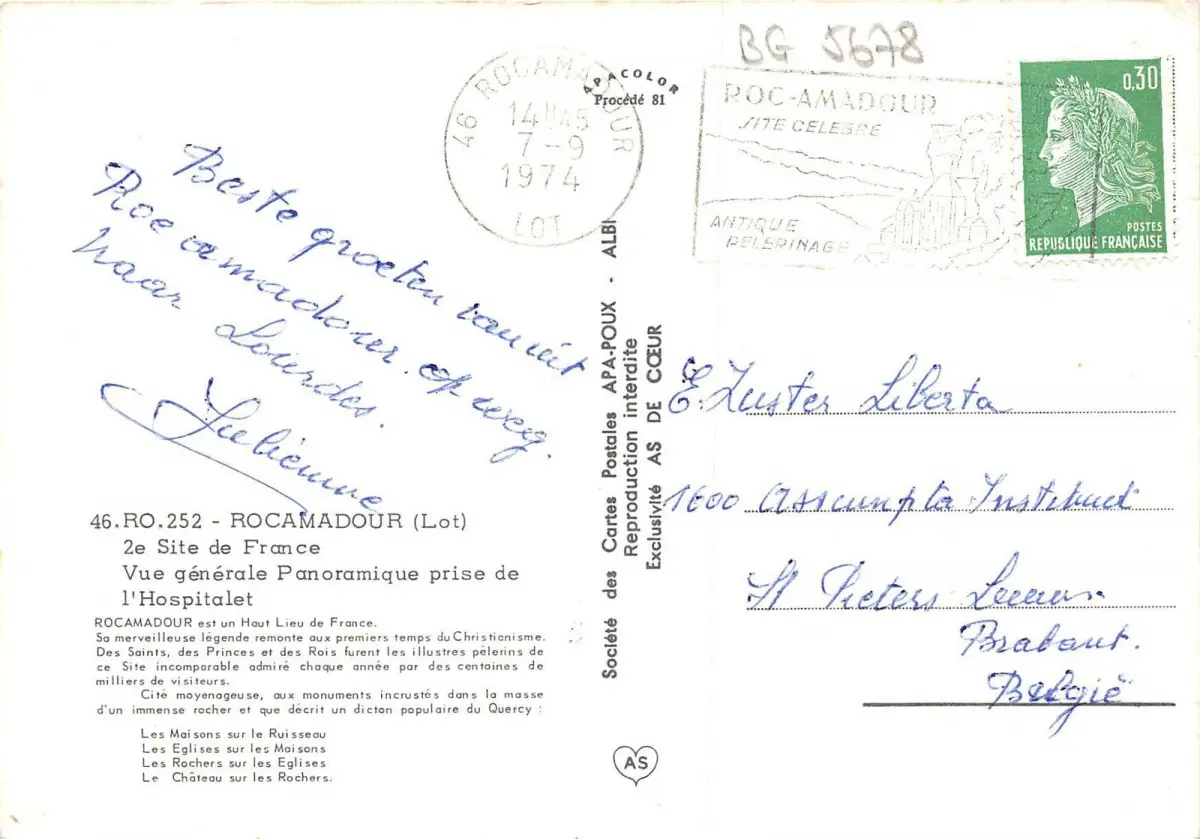 BG 5678
46 ROCAMADOUR
14H45
7-9
1974
LOT
APACOLOR
Procédé 81
ROC-AMADOUR
SITE CELEBRE
ANTIQUE
PELERINAGE
0,30
POSTES
REPUBLIQUE FRANÇAISE
Beste groeten vanuit
Roc amadour. op weg
naar Lourdes.
Julienne
46.RO.252 - ROCAMADOUR (Lot)
2e Site de France
Vue générale Panoramique prise de
l'Hospitalet
ROCAMADOUR est un Haut Lieu de France.
Sa merveilleuse légende remonte aux premiers temps du Christianisme.
Des Saints, des Princes et des Rois furent les illustres pèlerins de
ce Site incomparable admiré chaque année par des centaines de
milliers de visiteurs.
Cité moyenageuse, aux monuments incrustés dans la masse
d'un immense rocher et que décrit un dicton populaire du Quercy :
Les Maisons sur le Ruisseau
Les Eglises sur les Maisons
Les Rochers sur les Eglises
Le Château sur les Rochers.
Société des Cartes Postales APA-POUX - ALBI
Reproduction interdite
Exclusivité AS DE CŒUR
AS
E. Zuster Liberta
1600 Assumpta Instituut
St Pieters Leeuw
Brabant.
België